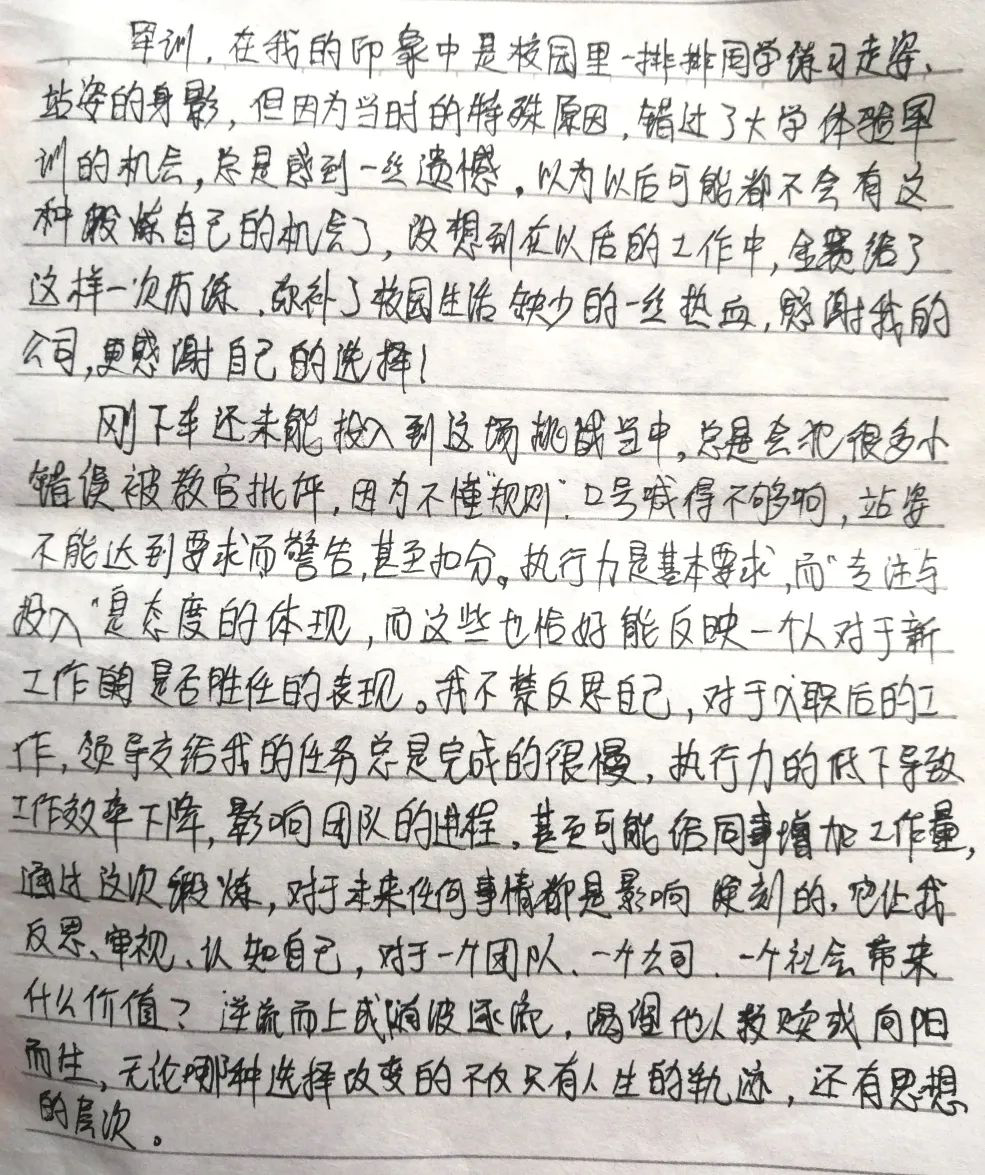 军训，在我的印象中是校园里一排排同学练习走姿、
站姿的身影，但因为当时的特殊原因，错过了大学体验军
训的机会，总是感到一丝遗憾，以为以后可能都不会有这
种锻炼自己的机会了，没想到在以后的工作中，金赛给了
这样一次历练，弥补了校园生活缺少的一丝热血，感谢我的
公司，更感谢自己的选择！
刚下车还未能投入到这场挑战当中，总是会犯很多小
错误被教官批评，因为不懂“规则”，口号喊得不够响，站姿
不能达到要求而警告，甚至扣分。执行力是基本要求，而“专注与
投入”是态度的体现，而这些也恰好能反映一个人对于新
工作的是否胜任的表现。我不禁反思自己，对于入职后的工
作，领导交给我的任务总是完成的很慢，执行力的低下导致
工作效率下降，影响团队的进程，甚至可能给同事增加工作量，
通过这次锻炼，对于未来任何事情都是影响深刻的，它让我
反思、审视、认知自己，对于一个团队、一个公司、一个社会带来
什么价值？逆流而上或随波逐流，渴望他人救赎或向阳
而生，无论哪种选择改变的不仅只有人生的轨迹，还有思想
的层次。